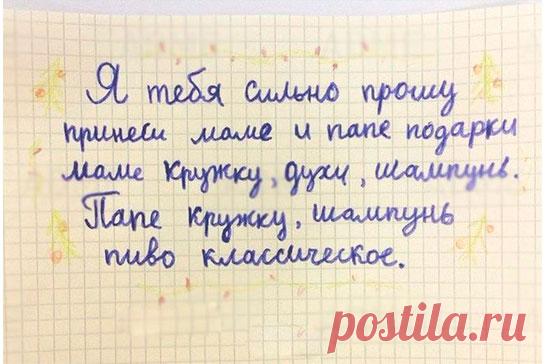 Я тебя сильно прошу
принеси маме и папе подарки
маме кружку, духи, шампунь.
Папе кружку, шампунь
пиво классическое.
postila.ru